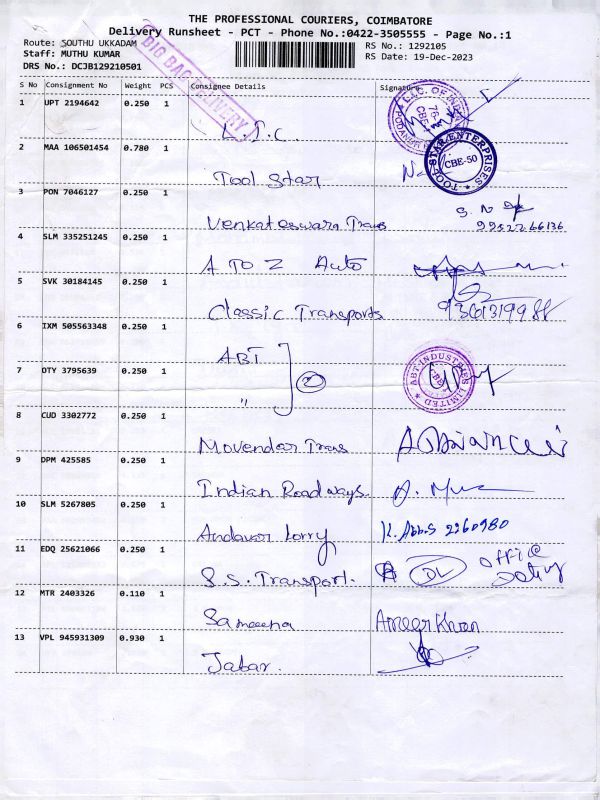 THE PROFESSIONAL COURIERS, COIMBATORE
Delivery Runsheet - PCT - Phone No.:0422-3505555 - Page No.:1
Route: SOUTHU UKKADAM
Staff: MUTHU KUMAR
DRS No.: DCJB129210501
RS No.: 1292105
RS Date: 19-Dec-2023
BIG BAG DELIVERY
S No Consignment No Weight PCS Consignee Details Signature
1 UPT 2194642 0.250 1 L.I.C.
2 MAA 106501454 0.780 1 Tool Star
TOOL STAR ENTERPRISES CBE-50
3 PON 7046127 0.250 1 Venkateswara Trans
4 SLM 335251245 0.250 1 A TO Z Auto
5 SVK 30184145 0.250 1 Classic Transports
6 IXM 505563348 0.250 1 ABT
7 OTY 3795639 0.250 1 "
2
ABT INDUSTRIES LIMITED CBE
8 CUD 3302772 0.250 1 Movendar Trans
9 DPM 425585 0.250 1 Indian Roadways.
10 SLM 5267805 0.250 1 Andavar lorry K. Abbas 2260980
11 EDQ 25621066 0.250 1 S.S. Transport. DL office
12 MTR 2403326 0.110 1 Sameena Ameer Khan
13 VPL 945931309 0.930 1 Jabar.